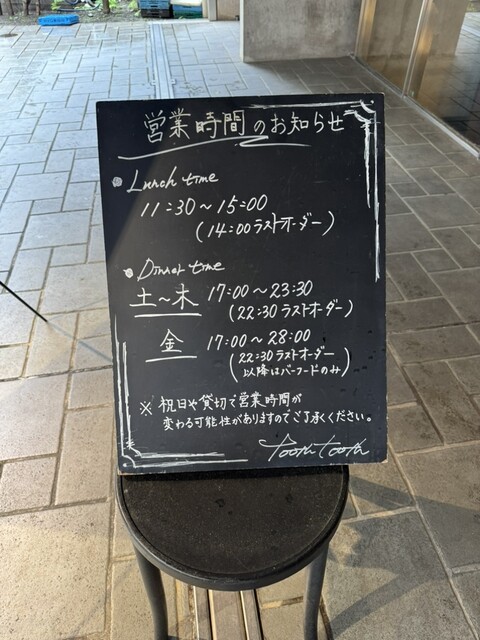 営業時間のお知らせ
Lunch time
11:30～15:00
(14:00ラストオーダー)
Dinner time
土～木 17:00～23:30
(22:30ラストオーダー)
金 17:00～28:00
(22:30ラストオーダー
以降はバーフードのみ)
※ 祝日や貸切で営業時間が
変わる可能性がありますのでご了承ください。
tooth tooth